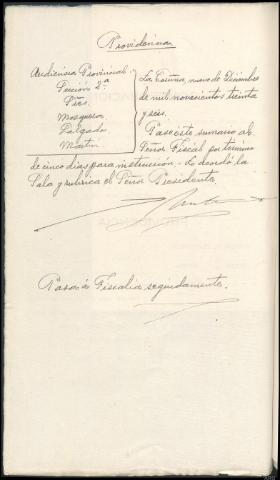 Providencia
Audiencia Provincial
Sección 2ª
Sres.
Mosquera
Delgado
Martin
La Coruña, nueve de Diciembre
de mil novecientos treinta
y seis.
Pase este sumario al
Señor Fiscal por termino
de cinco dias para instrucción. Lo acordó la
Sala y rubrica el Señor Presidente
Pasa á Fiscalia seguidamente.